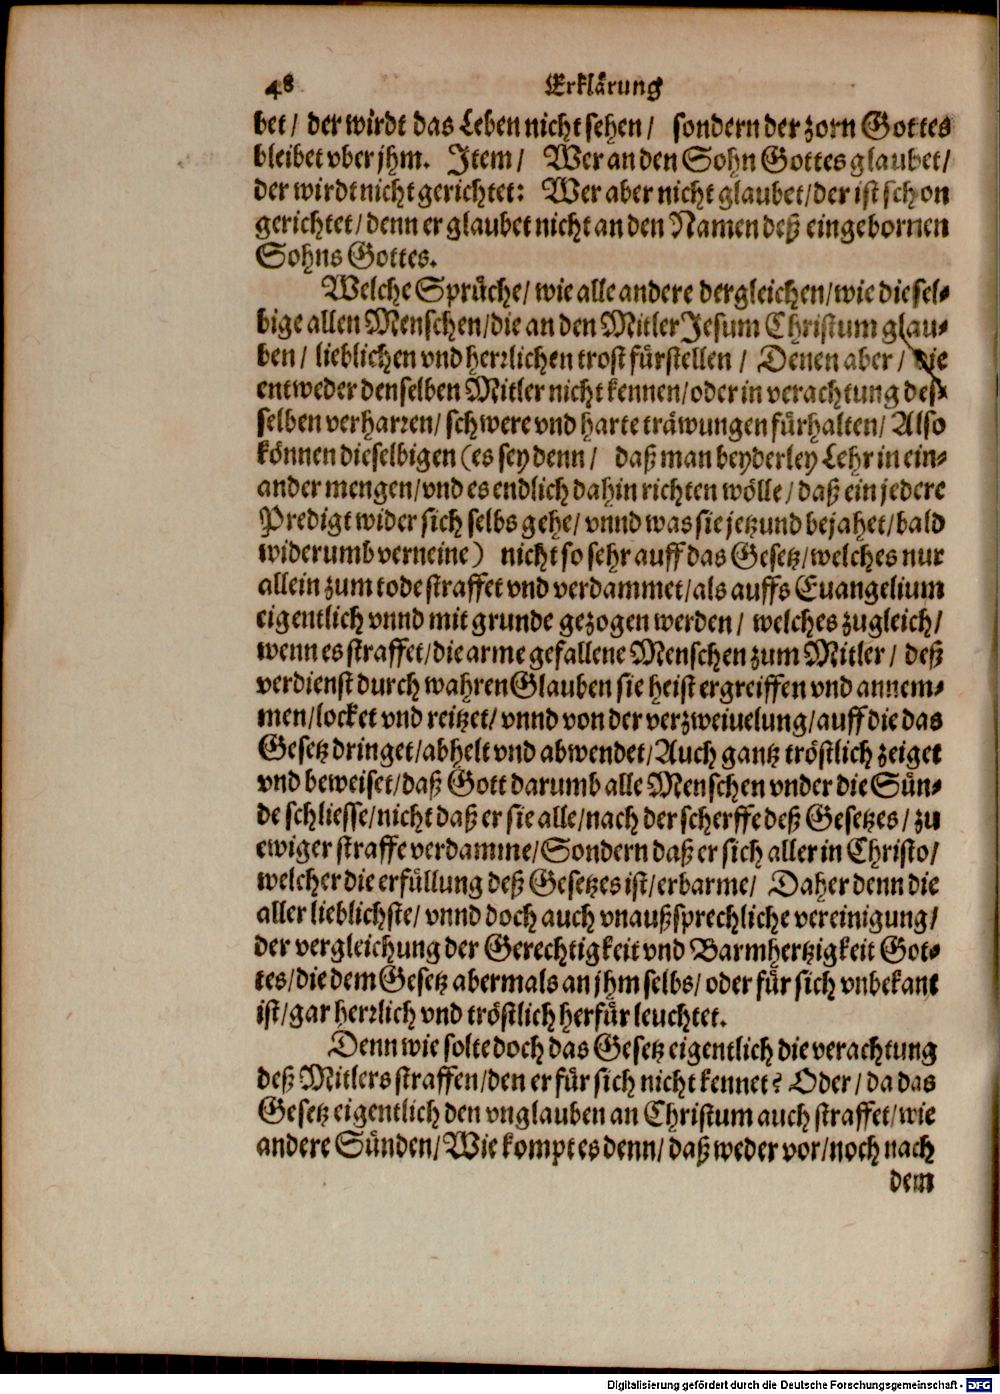 48 Erklärung
bet/ der wirdt das Leben nicht sehen/ sondern der zorn Gottes
bleibet vber jhm. Item/ Wer an den Sohn Gottes glaubet/
der wirdt nicht gerichtet: Wer aber nicht glaubet/der ist schon
gerichtet/denn er glaubet nicht an den Namen deß eingebornen
Sohns Gottes.
Welche Sprüche/wie alle andere dergleichen/wie diesel-
bige allen Menschen/die an den Mitler Jesum Christum glau-
ben/ lieblichen vnd herrlichen trost fürstellen/ Denen aber/ die
entweder denselben Mitler nicht kennen/oder in verachtung des-
selben verharren/schwere vnd harte träwungen fürhalten/Also
können dieselbigen (es sey denn/ daß man beyderley Lehr in ein-
ander mengen/vnd es endlich dahin richten wölle/daß ein jedere
Predigt wider sich selbs gehe/vnnd was sie jetzund bejahet/bald
widerumb verneine) nicht so sehr auff das Gesetz/welches nur
allein zum tode straffet vnd verdammet/als auffs Euangelium
eigentlich vnnd mit grunde gezogen werden/ welches zugleich/
wenn es straffet/die arme gefallene Menschen zum Mitler/ deß
verdienst durch wahren Glauben sie heist ergreiffen vnd annem-
men/locket vnd reitzet/vnnd von der verzweiuelung/auff die das
Gesetz dringet/abhelt vnd abwendet/Auch gantz tröstlich zeiget
vnd beweiset/daß Gott darumb alle Menschen vnder die Sün-
de schliesse/nicht daß er sie alle/nach der scherffe deß Gesetzes/zu
ewiger straffe verdamme/Sondern daß er sich aller in Christo/
welcher die erfüllung deß Gesetzes ist/erbarme/ Daher denn die
aller lieblichste/ vnnd doch auch vnaußsprechliche vereinigung/
der vergleichung der Gerechtigkeit vnd Barmhertzigkeit Got-
tes/die dem Gesetz abermals an jhm selbs/oder für sich vnbekant
ist/gar herrlich vnd tröstlich herfür leuchtet.
Denn wie solte doch das Gesetz eigentlich die verachtung
deß Mitlers straffen/den er für sich nicht kennet? Oder/da das
Gesetz eigentlich den vnglauben an Christum auch straffet/wie
andere Sünden/Wie kompt es denn/daß weder vor/noch nach
dem
Digitalisierung gefördert durch die Deutsche Forschungsgemeinschaft - DFG